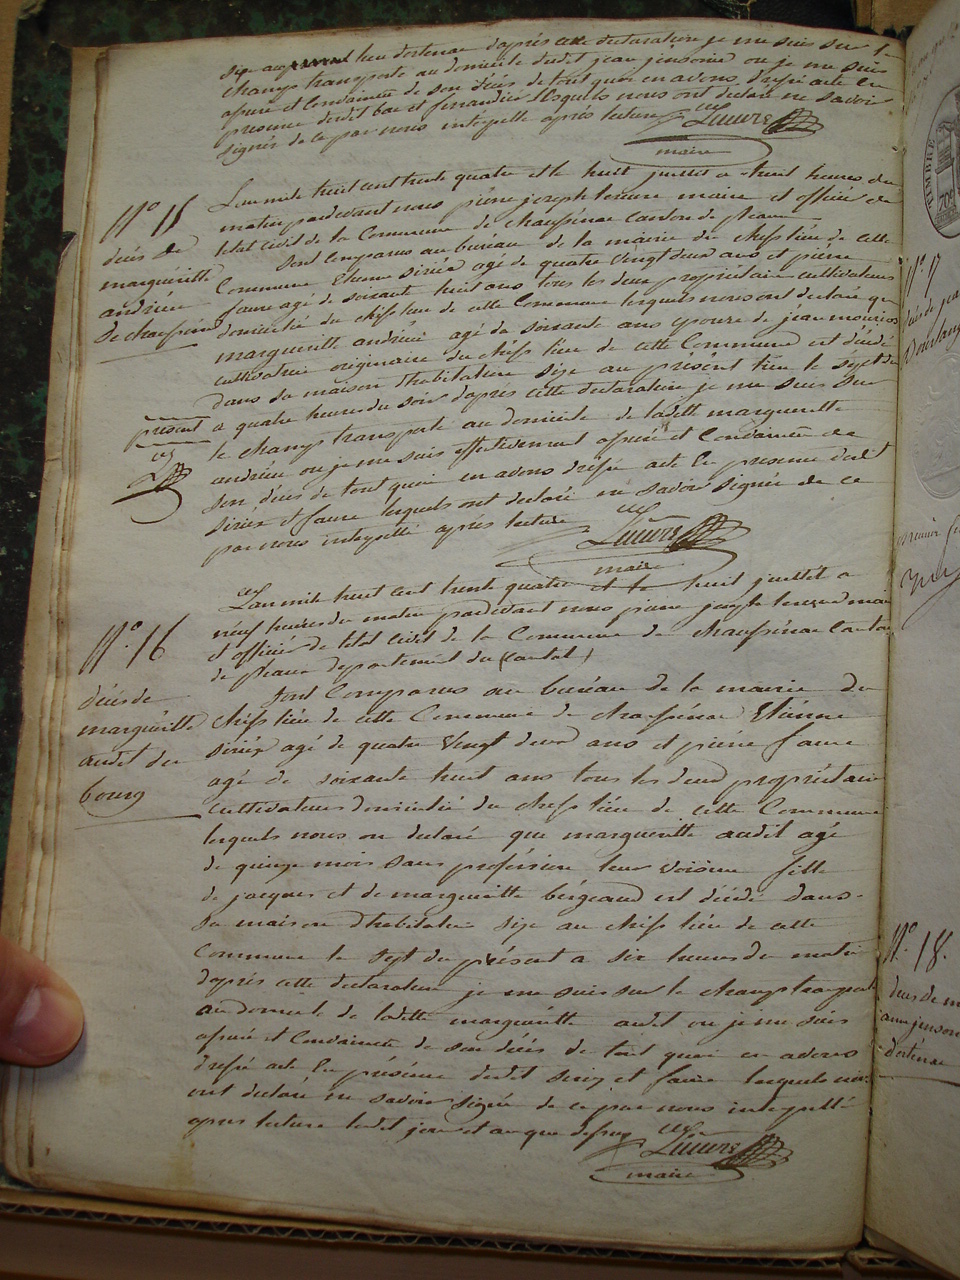 size au lieu dortenac d'après cette declaration je me suis sur le
champ transporté au domicile dudit jean jonsonie ou je me suis
assuré et Condaincu de son décès de tout quoi en avons dressé acte en
presence dudit et lesquels nous ont declaré ne savoir
signés de ce par nous interpellé après lecture
maire
N° 15
décès de
margueritte
andrieu
de chaussenac
Lan mile huit cent trente quatre et le huit juillet a huit heures du
matin pardevant nous pierre joseph maire et officier de
letat civil de la Commune de chaussenac canton de pleaux
Sont Comparus au bureau de la mairie du cheff lieu de cette
Commune Etienne siriéz agé de quatre vingt deux ans et pierre
faure agé de soixante huit ans tous les deux propriétaires cultivateurs
domicilié du cheff lieu de cette Commune lesquels nous ont declaré que
margueritte andrieu agé de soixante ans epouze de jean
cultivatrice originaire du cheff lieu de cette Commune est décédé
dans sa maison d'habitation size au présent lieu le sept du
présent a quatre heures du soir daprès cette declaration je me suis sur
le champ transporté au domicile de ladite margueritte
andrieu ou je me suis effectivement assuré et Condaincu de
son décès de tout quoi en avons dressé acte en presence dudit
siriés et faure lesquels ont declaré ne savoir signés de ce
par nous interpellé après lecture
maire
N° 16
décès de
margueritte
audit du
bourg
Lan mile huit cent trente quatre et le huit juillet a
neuf heures du matin pardevant nous pierre joseph maire
et officier de letat civil de la Commune de chaussenac canton
de pleaux departement du (cantal)
Sont Comparus au bureau de la mairie du
cheff lieu de cette Commune de chaussenac Etienne
siriéz agé de quatre vingt deux ans et pierre faure
agé de soixante huit ans tous les deux propriétaire
cultivateurs domicilié du cheff lieu de cette Commune
lesquels nous on declaré que margueritte audit agé
de quinze mois sans proféssion leur voisine fille
de jacques et de margueritte bergeaud est décédé dans
sa maison d'habitation size au cheff lieu de cette
Commune le sept du présent a six heures du matin
daprés cette declaration je me suis sur le champ transporté
au domicile de ladite margueritte audit ou je me suis
assuré et Condaincu de son décès de tout quoi en avons
dressé acte en présence dudit siriez et faure lesquels nous
ont declaré ne savoir signés de ce par nous interpellé
apres lecture ledit jour et an que dessus
maire
TIMBRE
N° 17
N° 18.
décès de
jonsonie
dortenac